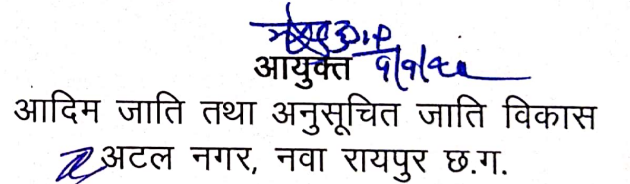 आयुक्त
आदिम जाति तथा अनुसूचित जाति विकास
अटल नगर, नवा रायपुर छ.ग.